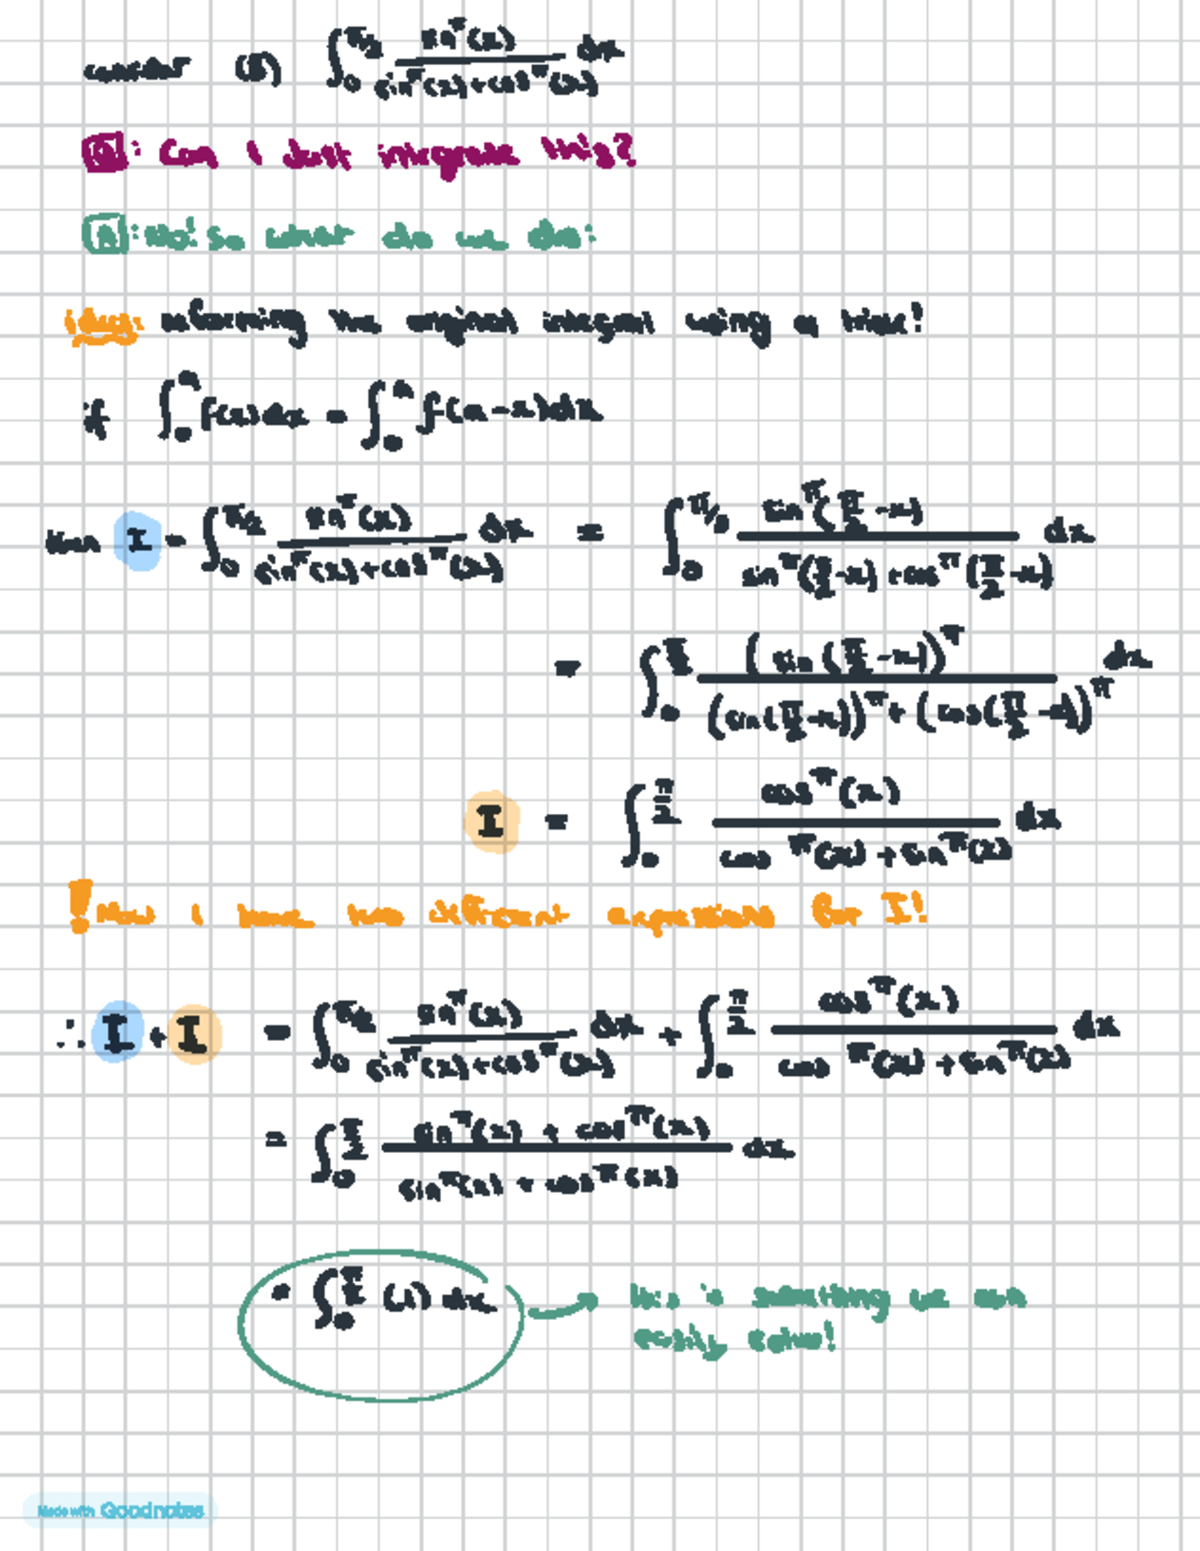 consider (B) ∫₀^{π/2} sin^π(x) / (sin^π(x)+cos^π(x)) dx
Q: Can I Just integrate this?
A: No! So what do we do:
Idea: reforming the original integral using a trick!
if ∫₀^a f(x)dx = ∫₀^a f(a-x)dx
then I = ∫₀^{π/2} sin^π(x) / (sin^π(x)+cos^π(x)) dx = ∫₀^{π/2} sin^π(π/2 -x) / (sin^π(π/2-x) + cos^π(π/2-x)) dx
= ∫₀^{π/2} (sin(π/2-x))^π / ((sin(π/2-x))^π + (cos(π/2-x))^π) dx
I = ∫₀^{π/2} cos^π(x) / (cos^π(x) + sin^π(x)) dx
! Now I have two different expressions for I!
∴ I + I = ∫₀^{π/2} sin^π(x) / (sin^π(x)+cos^π(x)) dx + ∫₀^{π/2} cos^π(x) / (cos^π(x) + sin^π(x)) dx
= ∫₀^{π/2} (sin^π(x) + cos^π(x)) / (sin^π(x) + cos^π(x)) dx
= ∫₀^{π/2} (1) dx → this is something we can
easily solve!
Made with Goodnotes